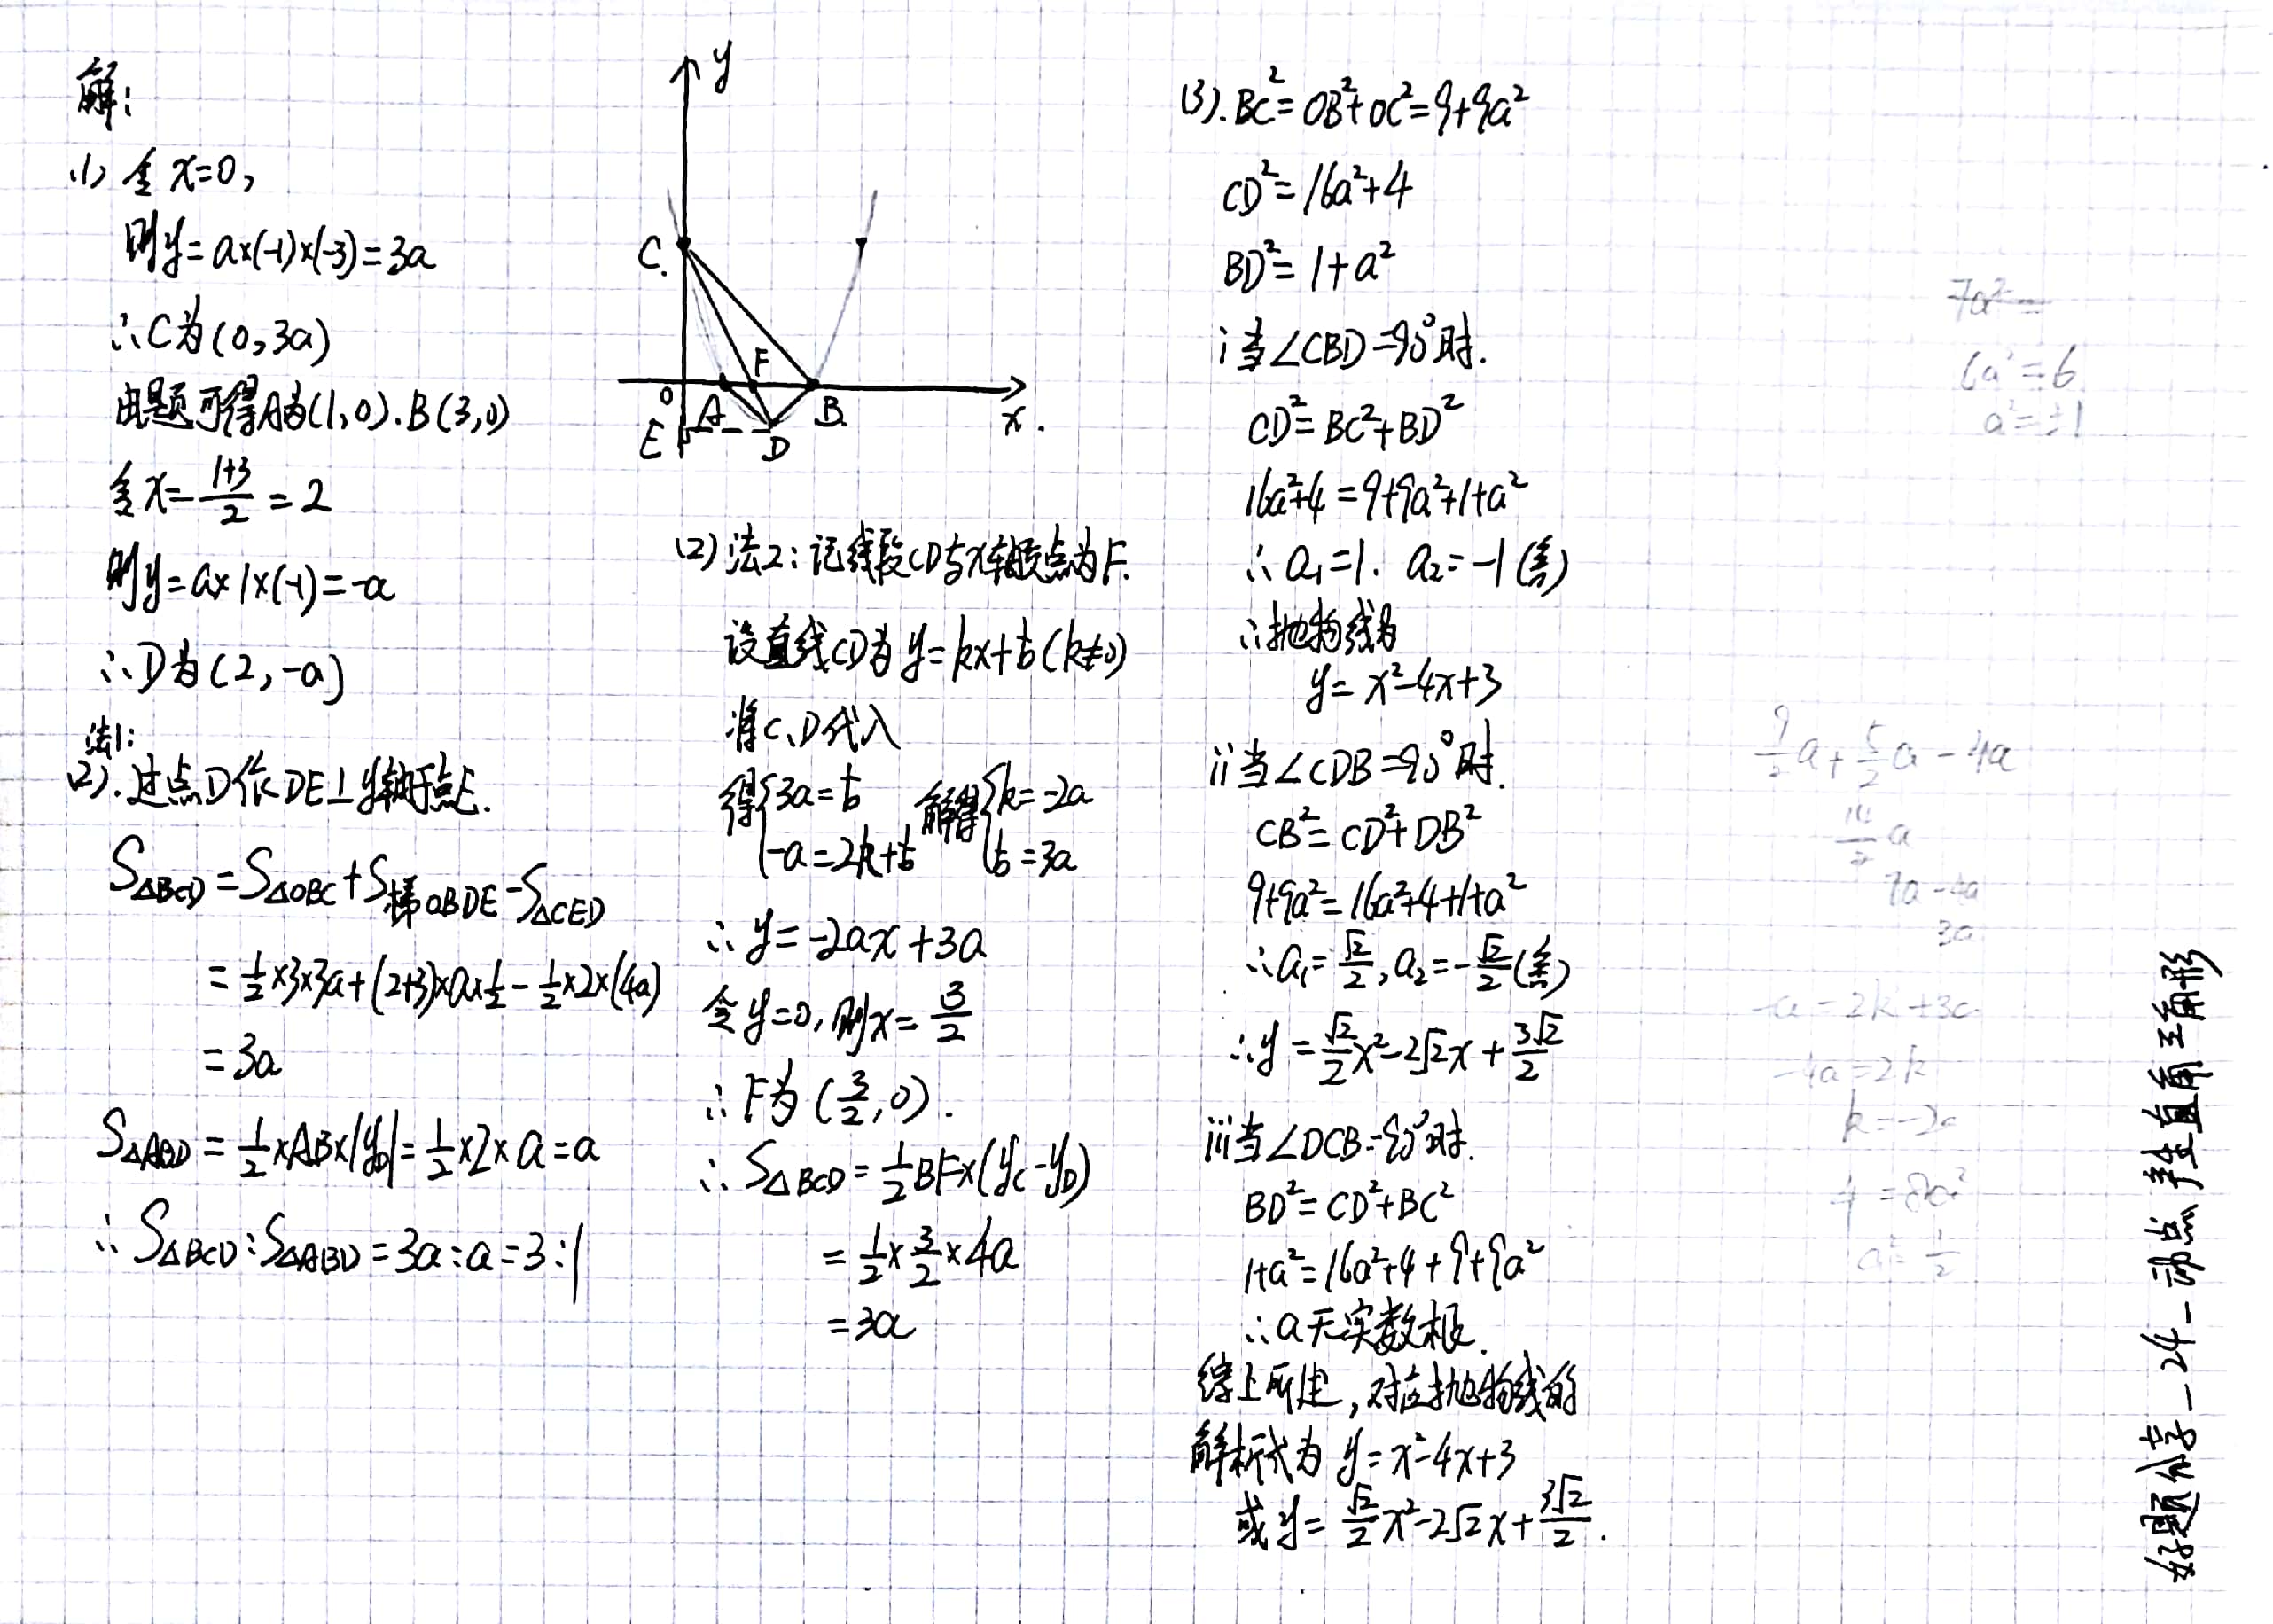 解:
(1) 令x=0,
则y=a×(-1)×(-3)=3a
∴C为(0,3a)
由题可得A为(1,0).B(3,0)
令x=\frac{1+3}{2}=2
则y=a×1×(-1)=-a
∴D为(2,-a)
法1:
(2).过点D作DE⊥y轴于点E.
S△BCD=S△OBC+S梯OBDE-S△CED
=\frac{1}{2}×3×3a+(2+3)×a×\frac{1}{2}-\frac{1}{2}×2×(4a)
=3a
S△ABD=\frac{1}{2}×AB×|y_D|=\frac{1}{2}×2×a=a
∴S△BCD:S△ABD=3a:a=3:1
y
C.
F
O
A
B
x.
E
D
(2)法2:记线段CD与x轴交点为F.
设直线CD为y=kx+b(k≠0)
将C、D代入
得{3a=b 解得{k=-2a
-a=2k+b b=3a
∴y=-2ax+3a
令y=0,则x=\frac{3}{2}
∴F为(\frac{3}{2},0).
∴S△BCD=\frac{1}{2}BF×(y_C-y_D)
=\frac{1}{2}×\frac{3}{2}×4a
=3a
(3).BC²=OB²+OC²=9+9a²
CD²=16a²+4
BD²=1+a²
i当∠CBD=90°时.
CD²=BC²+BD²
16a²+4=9+9a²+1+a²
∴a₁=1. a₂=-1(舍)
∴抛物线为
y=x²-4x+3
ii当∠CDB=90°时.
CB²=CD²+DB²
9+9a²=16a²+4+1+a²
∴a₁=\frac{√2}{2},a₂=-\frac{√2}{2}(舍)
∴y=\frac{√2}{2}x²-2√2x+\frac{3√2}{2}
iii当∠DCB=90°时.
BD²=CD²+BC²
1+a²=16a²+4+9+9a²
∴a无实数根.
综上所述,对应抛物线的
解析式为y=x²-4x+3
或y=\frac{√2}{2}x²-2√2x+\frac{3√2}{2}.
7a²=
6a²=6
a²=±1
\frac{9}{2}a+\frac{5}{2}a-4a
\frac{14}{2}a
7a-4a
3a
-a=2k+3a
-4a=2k
k=-2a
4=8a²
a²=\frac{1}{2}
好题分享_24_动点产生直角三角形